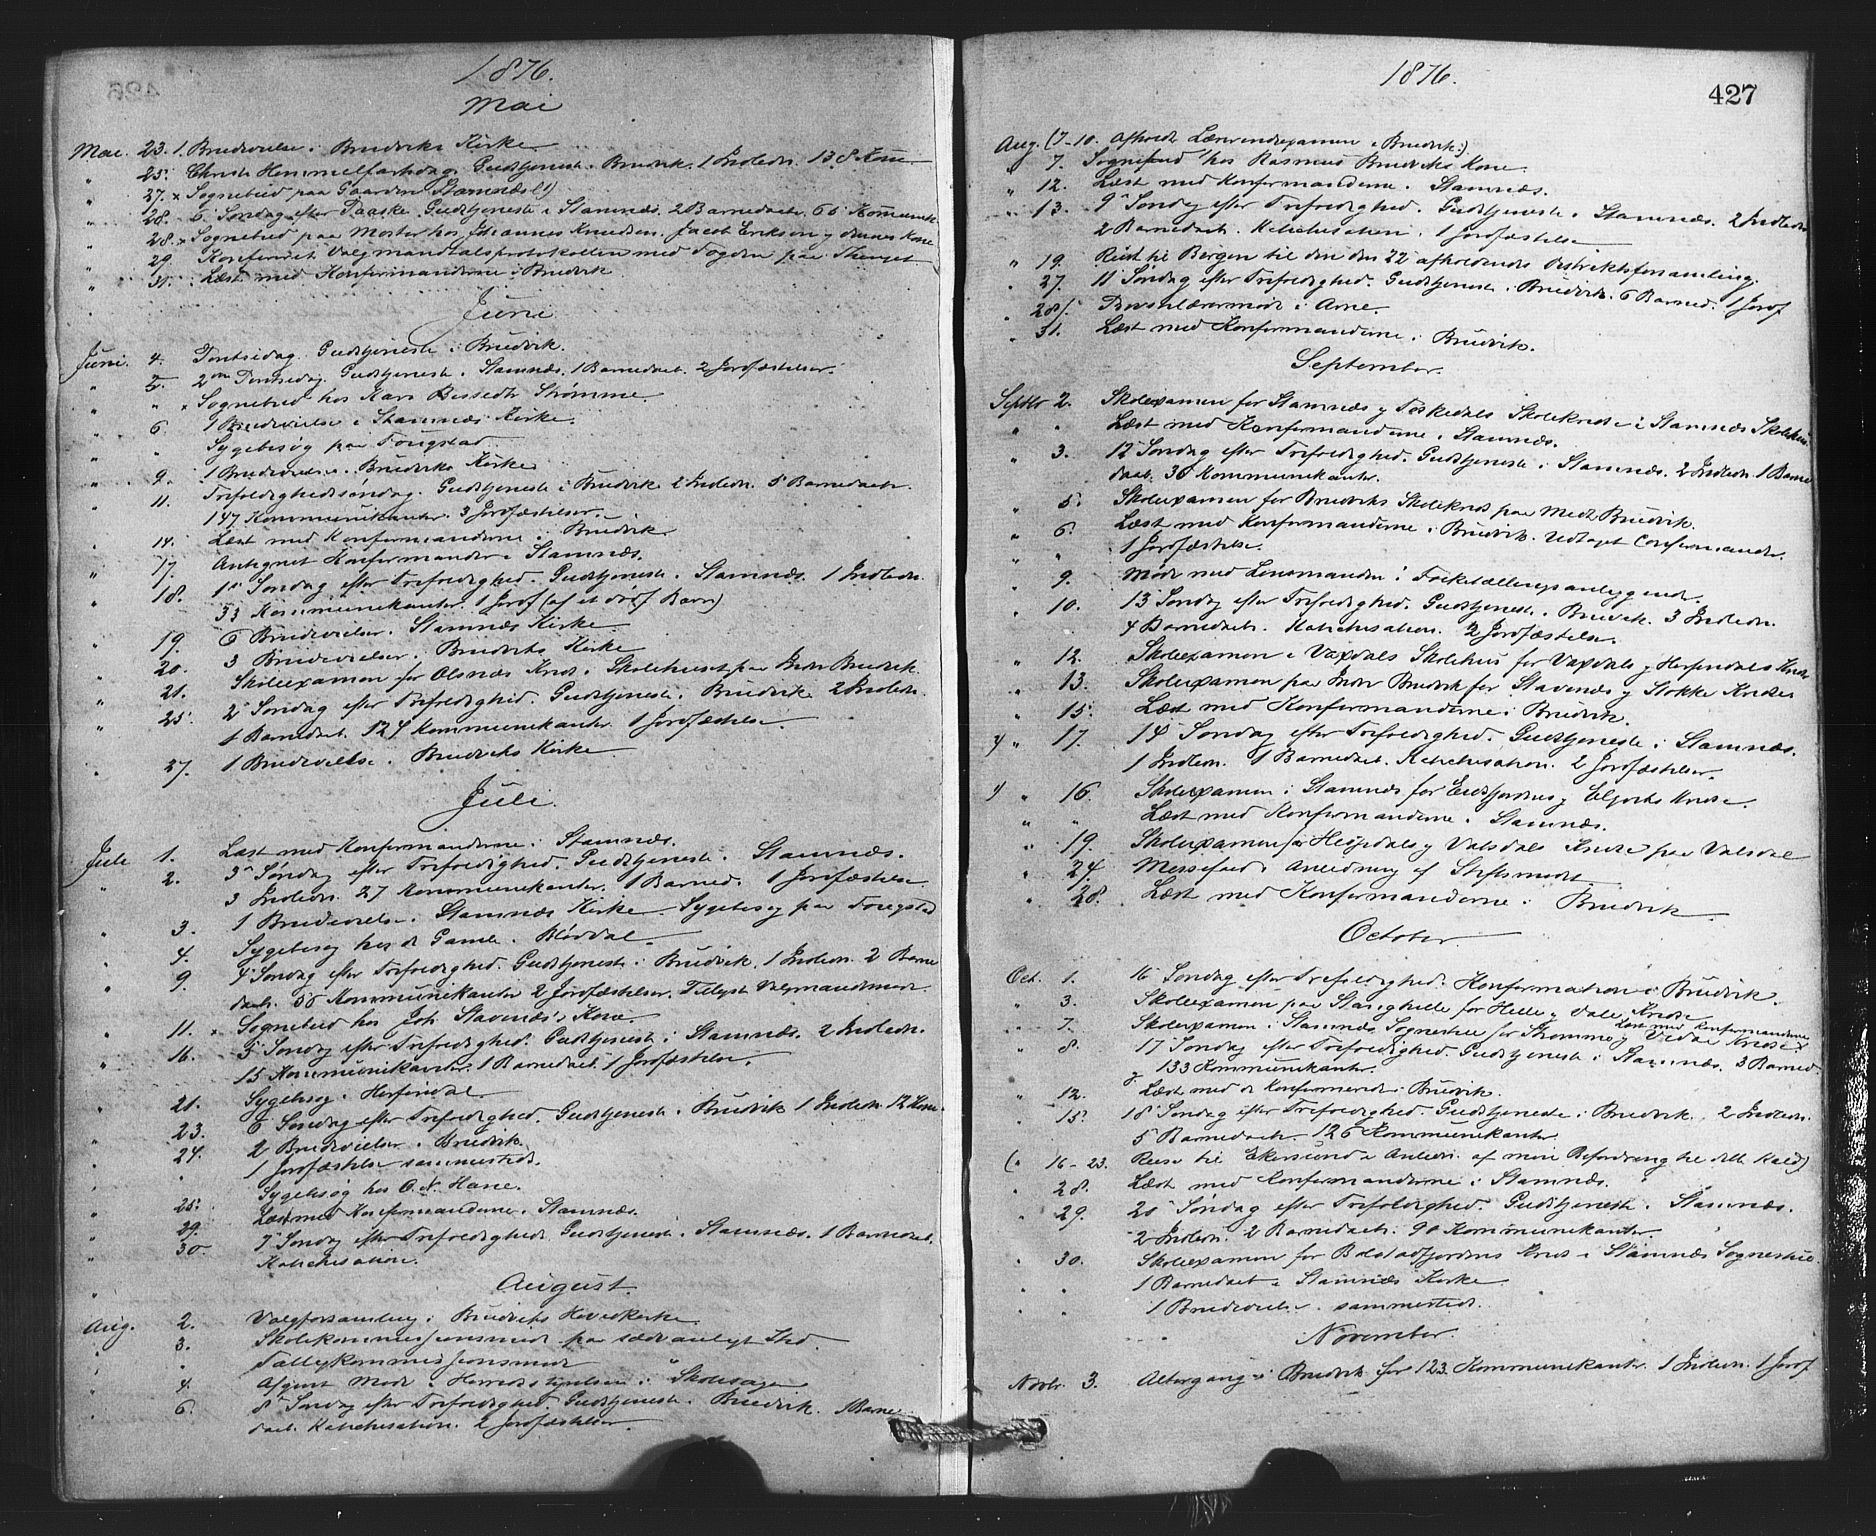 1876.
Mai
Mai. 23. 1 Brudevielse i Bruviks Kirke.
" 25. Christi Himmelfartsdag. Gudstjeneste i Bruvik. 1 Indledn. 138 Kom
" 27. x Sognebud paa Gaarden Stamnæs (1)
" 28. 6 Søndag efter Paaske. Gudstjeneste i Stamnæs. 2 Barnedaab. 66 Kommunik
" 28. x Sognebud paa Moster hos Johannes Knudsen, Jacob Eriksen og dennes Kone
" 29. Konfereret Valgmandtalsprotokollen med Fogden paa Thinget
" 31. Læst med Konfirmanderne i Bruvik
Juni
Juni. 4. Pintsedag. Gudstjeneste i Bruvik.
" 5. 2den Pintsedag Gudstjeneste i Stamnæs. 1 Barnedaab. 2 Jordfæstelser.
" " x Sognebud hos Kari Strømme
" 6. 1 Brudevielse i Stamnæs Kirke.
" " Sygebesøg paa Fougstad.
" 9. 1 Brudevielse i Bruviks Kirke
" 11. Trefoldighedssøndag. Gudstjeneste i Bruvik 2 Indledn. 5 Barnedaab.
147 Kommunikanter. 3 Jordfæstelser.
" 14. Læst med Konfirmanderne i Bruvik
" 17. Antegnet Konfirmander i Stamnæs.
" 18. 1s Søndag efter Trefoldighed. Gudstjeneste i Stamnæs. 1 Indledn.
53 Kommunikanter. 1 Jordf (af et dødf Barn)
" 19. 6 Brudevielser i Stamnæs Kirke
" 20. 3 Brudevielser i Bruviks Kirke
" 21. Skoleexamen for Olsnæs Kreds i Skolehuset paa Indre Bruvik
" 25. 2 Søndag efter Trefoldighed. Gudstjeneste i Bruvik 2 Indledn.
1 Barnedaab. 124 Kommunikanter. 1 Jordfæstelse
" 27. 1 Brudevielse i Bruviks Kirke
Juli.
Juli 1. Læst med Konfirmanderne i Stamnæs.
" 2. 3 Søndag efter Trefoldighed. Gudstjeneste i Stamnæs.
3 Indledn. 27 Kommunikanter. 1 Barned. 1 Jordfæstelse
" 3. 1 Brudevielse i Stamnæs Kirke. Sygebesøg paa Fougstad
" 4. Sygebesøg hos de Gamle i Bløvdal.
" 9. 4 Søndag efter Trefoldighed. Gudstjeneste i Bruvik. 1 Indledn. 2 Barne
daab. 58 Kommunikanter 2 Jordfæstelser. Tillyst Valgmandsmøde.
" 11. x Sognebud hos Joh. Stavenæs's Kone
" 16. 5 Søndag efter Trefoldighed. Gudstjeneste i Stamnæs. 2 Indledn.
15 Kommunikanter. 1 Barnedaab. 1 Jordfæstelse.
" 21. Sygebesøg i Herfindal.
" 23. 6 Søndag efter Trefoldighed. Gudstjeneste i Bruvik 1 Indledn. 12 Kom.
" 24. 2 Brudevielser i Bruvik
" 1 Jordfæstelse sammesteds.
" Sygebesøg hos O. N. Hane.
" 25. Læst med Konfirmanderne i Stamnæs.
" 29.
" 30. 7 Søndag efter Trefoldighed. Gudstjeneste i Stamnæs. 1 Barnedaab.
" Katechisation.
August.
Aug. 2. Valgforsamling i Bruviks Hovedkirke.
" 3. Skolekommissionsmøde paa sædvanligt Sted
" Fattigkommissionsmøde
" 4. Møde i Herredsstyrelsen i Skolesager
" 6. 8 Søndag efter Trefoldighed. Gudstjeneste i Bruvik. 1 Barne-
daab. Katechisation. 2 Jordfæstelser.
1876.
427
Aug. (7-10. Afholdt Lærerindexamen i Bruvik.)
" 7. Sognebud hos Rasmus Bruviks Kone
" 12. Læst med Konfirmanderne i Stamnæs.
" 13. 9 Søndag efter Trefoldighed. Gudstjeneste i Stamnæs. 2 Indledn
2 Barnedaab. Katechisation. 1 Jordfæstelse
" 19. Reist til Bergen til den den 22 afholdende Distriktsforsamling.
" 27. 11 Søndag efter Trefoldighed. Gudstjeneste i Bruvik. 6 Barned. 1 Jordf
" 28/. i Arne.
" 31. Læst med Konfirmanderne i Bruvik.
September.
Septbr 2. Skoleexamen for Stamnæs og Toskedals Skolekreds i Stamnæs Skolehus
" " Læst med Konfirmanderne i Stamnæs.
" 3. 12 Søndag efter Trefoldighed. Gudstjeneste i Stamnæs. 2 Indledn 1 Barne
daab. 30 Kommunikanter.
" 5. Skoleexamen for Bruviks Skolekreds paa Bruvik.
" 6. Læst med Konfirmanderne i Bruvik. Confirmander.
" " 1 Jordfæstelse.
" 9. Møde med Lensmanden i Folketællingsanliggender.
" 10. 13 Søndag efter Trefoldighed. Gudstjeneste i Bruvik. 3 Indledn.
4 Barnedaab. Katechisation. 2 Jordfæstelser.
" 12. Skoleexamen i Vaxdals Skolehus for Vaxdals og Herfindals Kreds
" 13. Skoleexamen paa Indre Bruvik for Stavenæs og Stokke Kredse
" 15. Læst med Konfirmanderne i Bruvik.
" 17. 14 Søndag efter Trefoldighed. Gudstjeneste i Stamnæs.
1 Indledn. 1 Barnedaab. Katechisation. 2 Jordfæstelser.
" 16. Skoleexamen i Stamnæs for Eidsfjordens og Kredse.
" " Læst med Konfirmanderne i Stamnæs.
" 19. Skoleexamen for Hesjedals og Valsdals Kredse paa Valsdal
" 24. Messefald i Anledning af Stiftsmødet
" 28. Læst med Konfirmanderne i Bruvik.
October
Oct. 1. 16 Søndag efter Trefoldighed. Konfirmation i Bruvik.
" 3. Skoleexamen paa Stanghelle for Helle og Dale Kredse
" 7. Skoleexamen i Stamnæs Sognestue for Strømme og Vidal Kredse. Læst med Konfirmanderne
" 8. 17 Søndag efter Trefoldighed. Gudstjeneste i Stamnæs. 3 Barned.
og 133 Kommunikanter.
" 12. Læst med de Konfirmerede i Bruvik.
" 15. 18 Søndag efter Trefoldighed. Gudstjeneste i Bruvik. 2 Indledn.
5 Barnedaab. 126 Kommunikanter.
(" 16-23. Reise til Ekersund i Anledn. af min Befordring til dette Kald)
" 28. Læst med Konfirmanderne i Stamnæs.
" 29. 20 Søndag efter Trefoldighed. Gudstjeneste i Stamnæs.
2 Indledn. 2 Barnedaab. 90 Kommunikanter.
" 30. Skoleexamen for Bolstadfjordens Kreds i Stamnæs Sognestue.
" " 1 Barnedaab i Stamnæs Kirke
" " 1 Brudevielse sammesteds.
November.
Novbr. 3. Altergang i Bruvik for 123 Kommunikanter. 1 Indledn. 1 Jordf